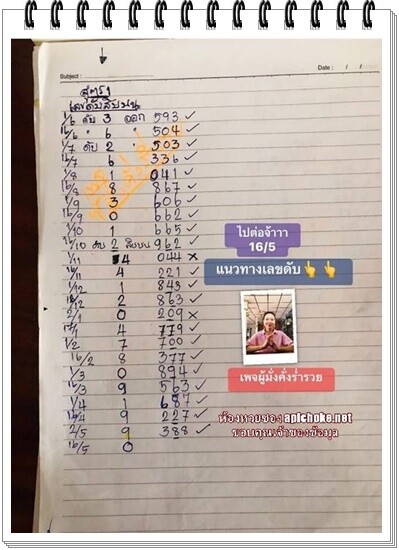 Subject :
Date : / /
สูตร
เลขดับสิบบน
1/6 ดับ 3 ออก 593 ✓
16/6 " 6 " 504 ✓
1/7 ดับ 2 " 503 ✓
16/7 6 336 ✓
1/8 1 041 ✓
16/8 8 867 ✓
1/9 3 606 ✓
16/9 0 662 ✓
1/10 1 665 ✓
16/10 ดับ 2 สิบบน 962 ✓
1/11 4 044 ×
16/11 4 221 ✓
1/12 1 843 ✓
16/12 2 863 ✓
2/1 0 209 ×
17/1 4 779 ✓
1/2 7 700 ✓
16/2 8 377 ✓
1/3 0 894 ✓
16/3 9 563 ✓
1/4 1 687 ✓
16/4 9 227 ✓
2/5 9 388 ✓
16/5 0
ไปต่อจ้าาา
16/5
แนวทางเลขดับ👆👆
เพจผู้มั่งคั่งร่ำรวย
ห้องหวยของ apichoke.net
ขอบคุณเจ้าของข้อมูล